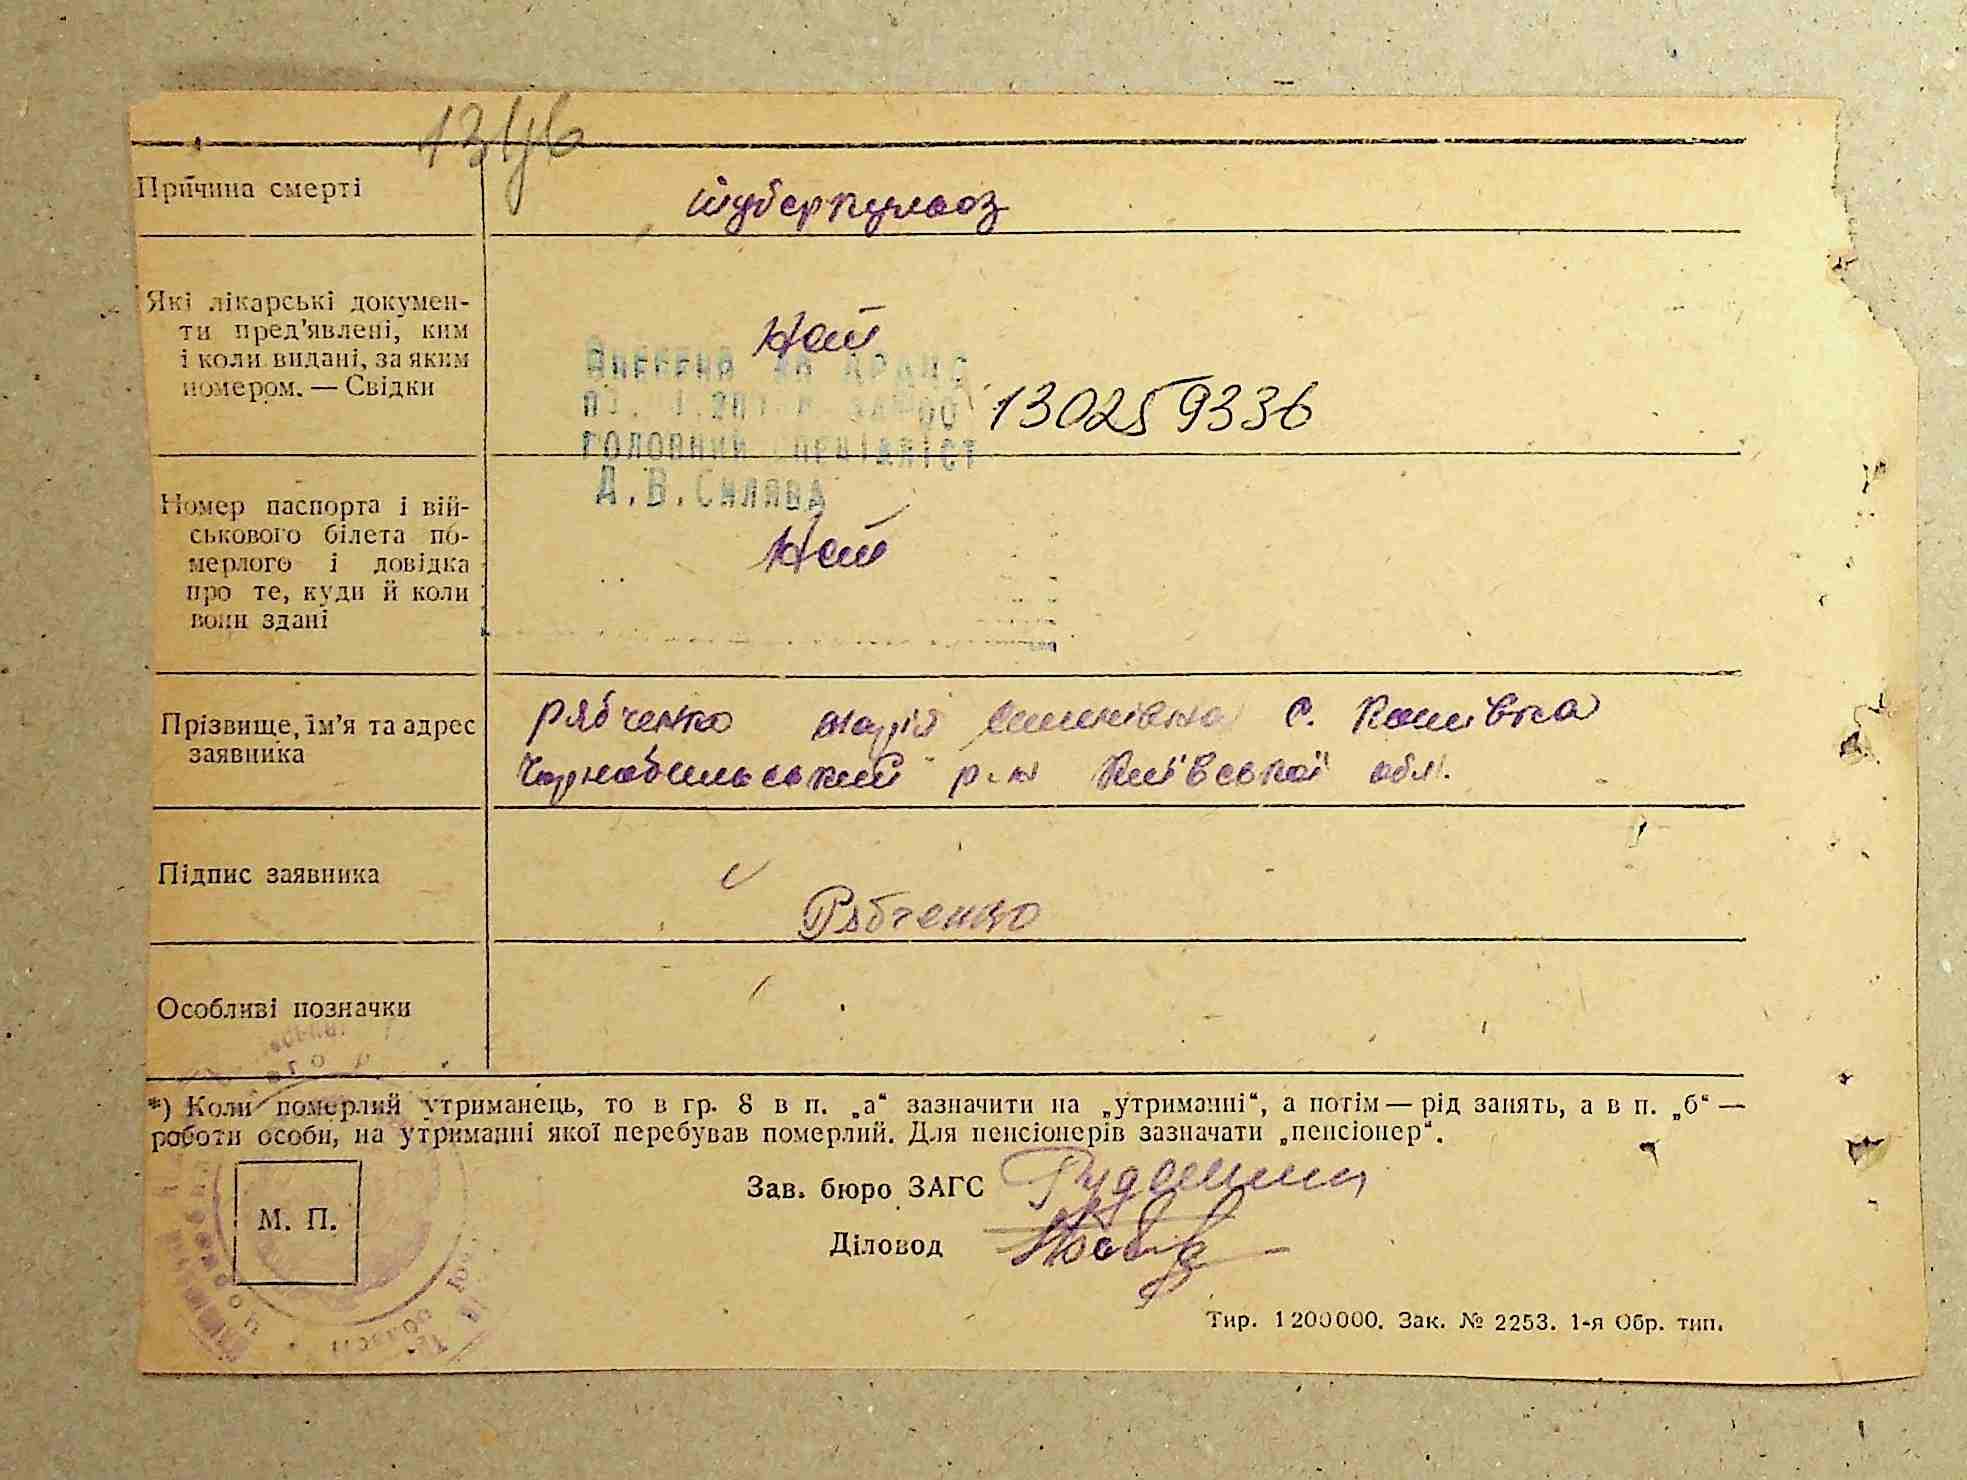 Причина смерті
туберкульоз
Які лікарські докумен-
ти пред'явлені, ким
і коли видані, за яким
номером. — Свідки
Нет
130259336
головний спеціаліст
Номер паспорта і вій-
ськового білета по-
мерлого і довідка
про те, куди й коли
вони здані
Нет
Прізвище, ім'я та адрес
заявника
Рябченко с.
Чорнобильський р-н Київської обл.
Підпис заявника
Рябченко
Особливі позначки
*) Коли померлий утриманець, то в гр. 8 в п. „а“ зазначити на „утриманні“, а потім — рід занять, а в п. „б“ —
роботи особи, на утриманні якої перебував померлий. Для пенсіонерів зазначати „пенсіонер“.
М. П.
Зав. бюро ЗАГС
Діловод
Тир. 1200000. Зак. № 2253. 1-я Обр. тип.